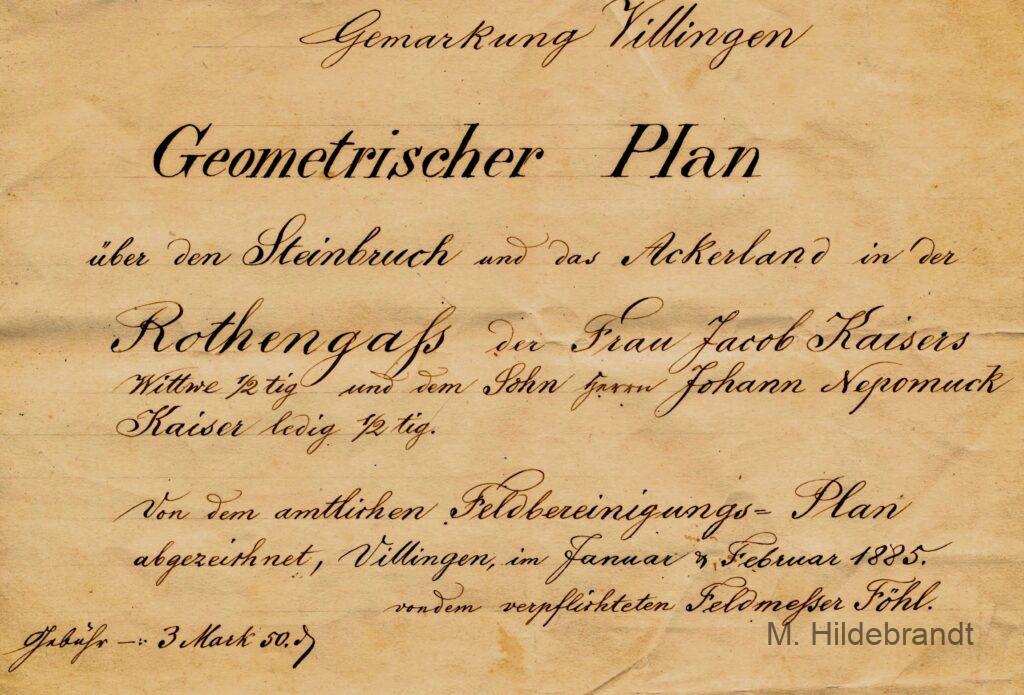 Gemarkung Villingen
Geometrischer Plan
über den Steinbruch und das Ackerland in der
Rothengaſs der Frau Jacob Kaisers
Wittwe 1/2 tig und dem Sohn Herrn Johann Nepomuck
Kaiser ledig 1/2 tig.
Von dem amtlichen Feldbereinigungs= Plan
abgezeichnet, Villingen, im Januar & Februar 1885.
von dem verpflichteten Feldmeſser Föhl.
Gebühr —: 3 Mark 50. ₰
M. Hildebrandt